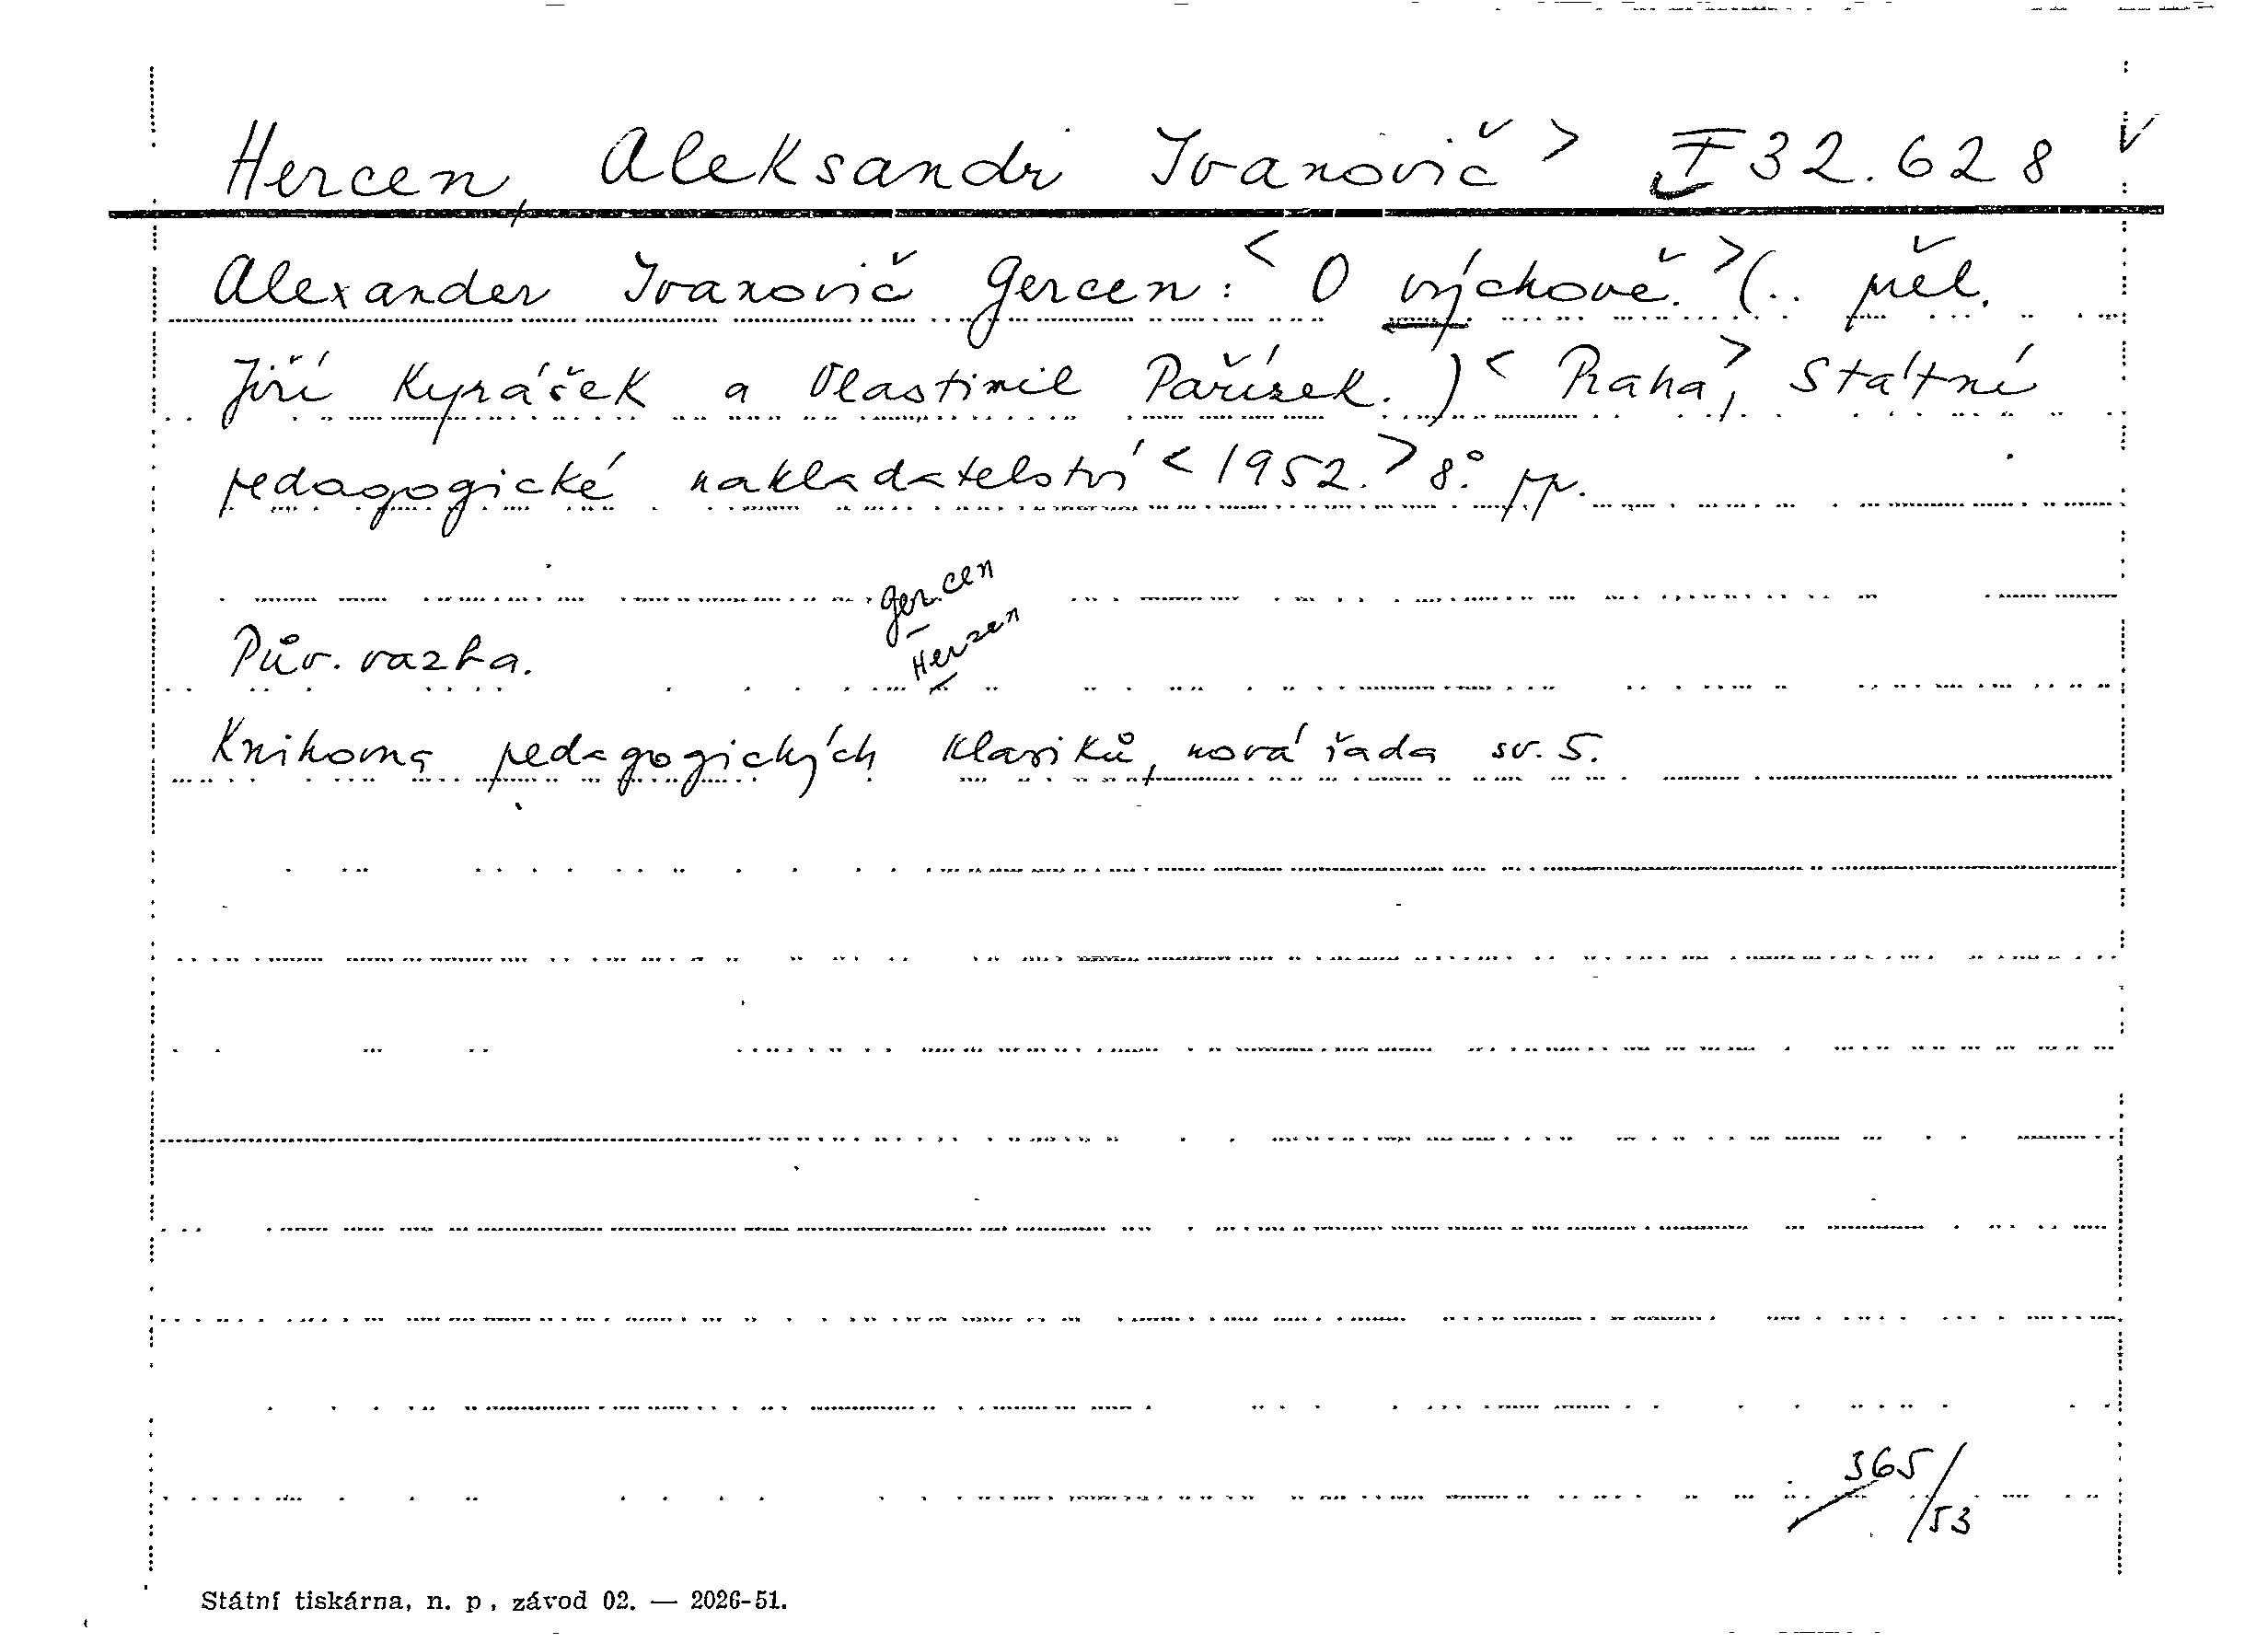 Hercen, Aleksandr Ivanovič > I 32.628
Alexander Ivanovič Gercen: < O výchově. > (.. přel.
Jiří Kyrášek a Vlastimil Pařízek. ) < Praha >, Státní
pedagogické nakladatelství < 1952. > 8° pp.
Gercen
Herzen
Pův. vazba.
Knihovna pedagogických klasiků, nová řada sv. 5.
365/53
Státní tiskárna, n. p., závod 02. — 2026-51.